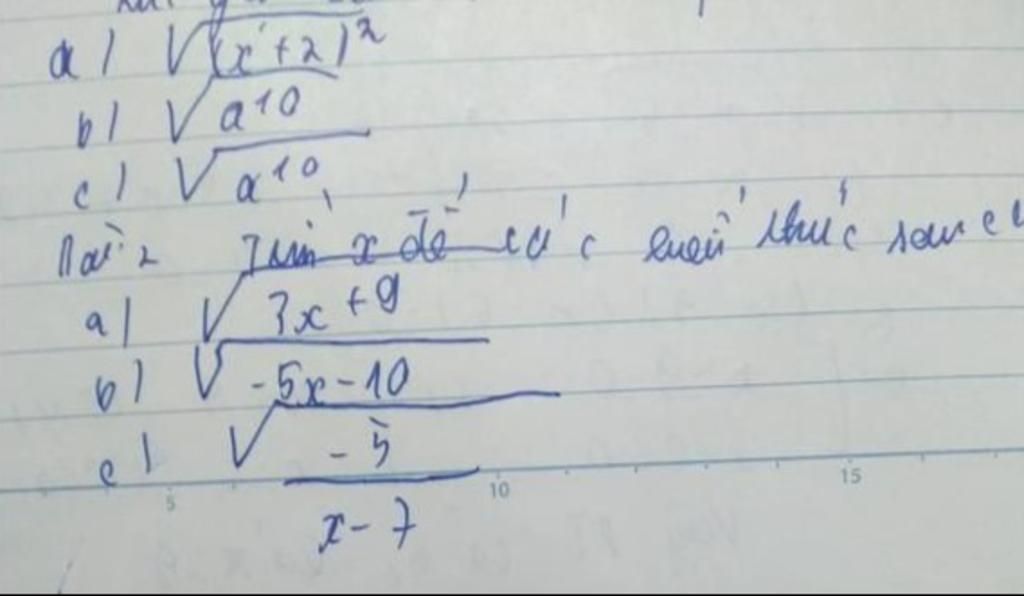 a) √(x+2)²
b) √a¹⁰
c) √a¹⁰
Bài 2 Tìm x để các thức sau
a) √3x+9
b) √-5x-10
c) √-5/x-7
5 10 15